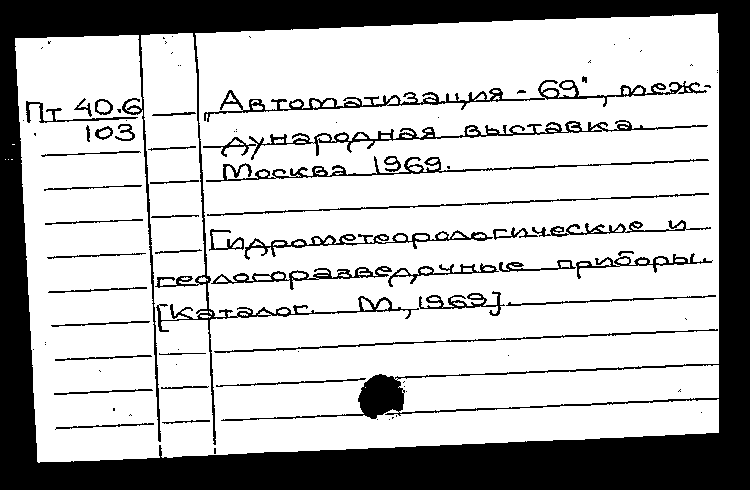 Пт 40.6
103
„Автоматизация - 69", меж-
дународная выставка.
Москва. 1969.
Гидрометеорологические и
геологоразведочные приборы.
[Каталог. М., 1969].